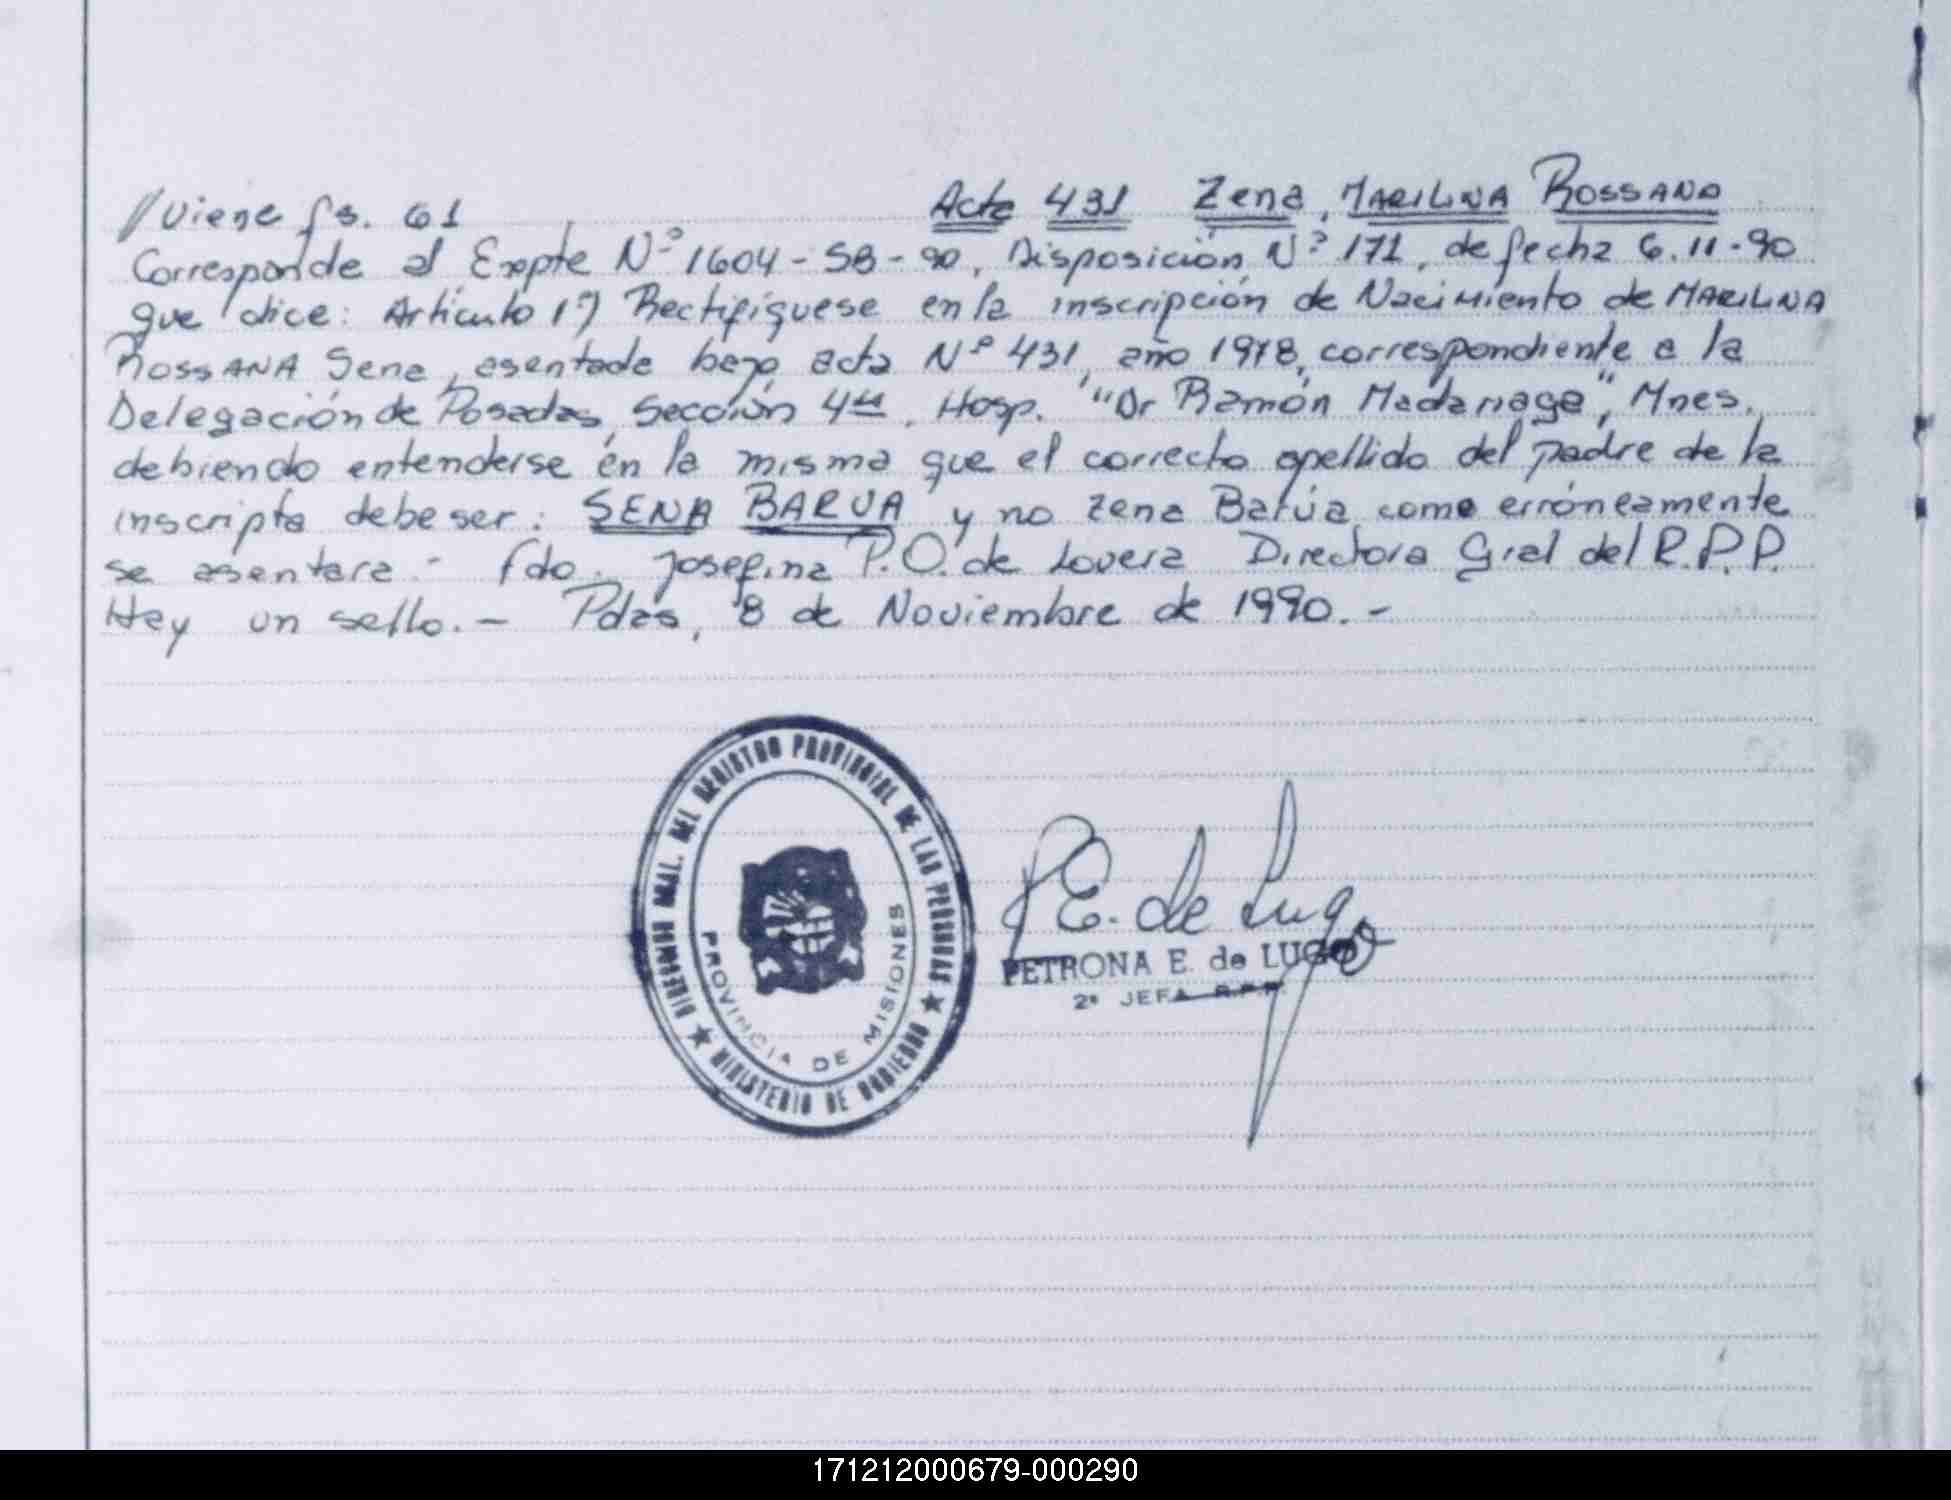 // Viene fs. 61 Acta 431 Zena, MARILINA ROSSANA
Corresponde al Expte Nº 1604-SB-90, Disposición Nº 171, de fecha 6.11.90
que dice: Artículo 1º) Rectifíquese en la inscripción de Nacimiento de MARILINA
ROSSANA Sena, asentada bajo acta Nº 431, año 1978, correspondiente a la
Delegación de Posadas, Sección 4ta, Hosp. "Dr Ramón Madariaga", Mnes.
debiendo entenderse en la misma que el correcto apellido del padre de la
inscripta debe ser: SENA BARUA y no Zena Barúa como erróneamente
se asentara.- fdo. Josefina P.O. de Lovera Directora Gral del R.P.P.
Hay un sello.- Pdas, 8 de Noviembre de 1990.-
DIRECCION GRAL. DEL REGISTRO PROVINCIAL DE LAS PERSONAS
PROVINCIA DE MISIONES
★ MINISTERIO DE GOBIERNO ★
P E. de Lugo
PETRONA E. de LUGO
2ª JEFA R.P.P.
171212000679-000290